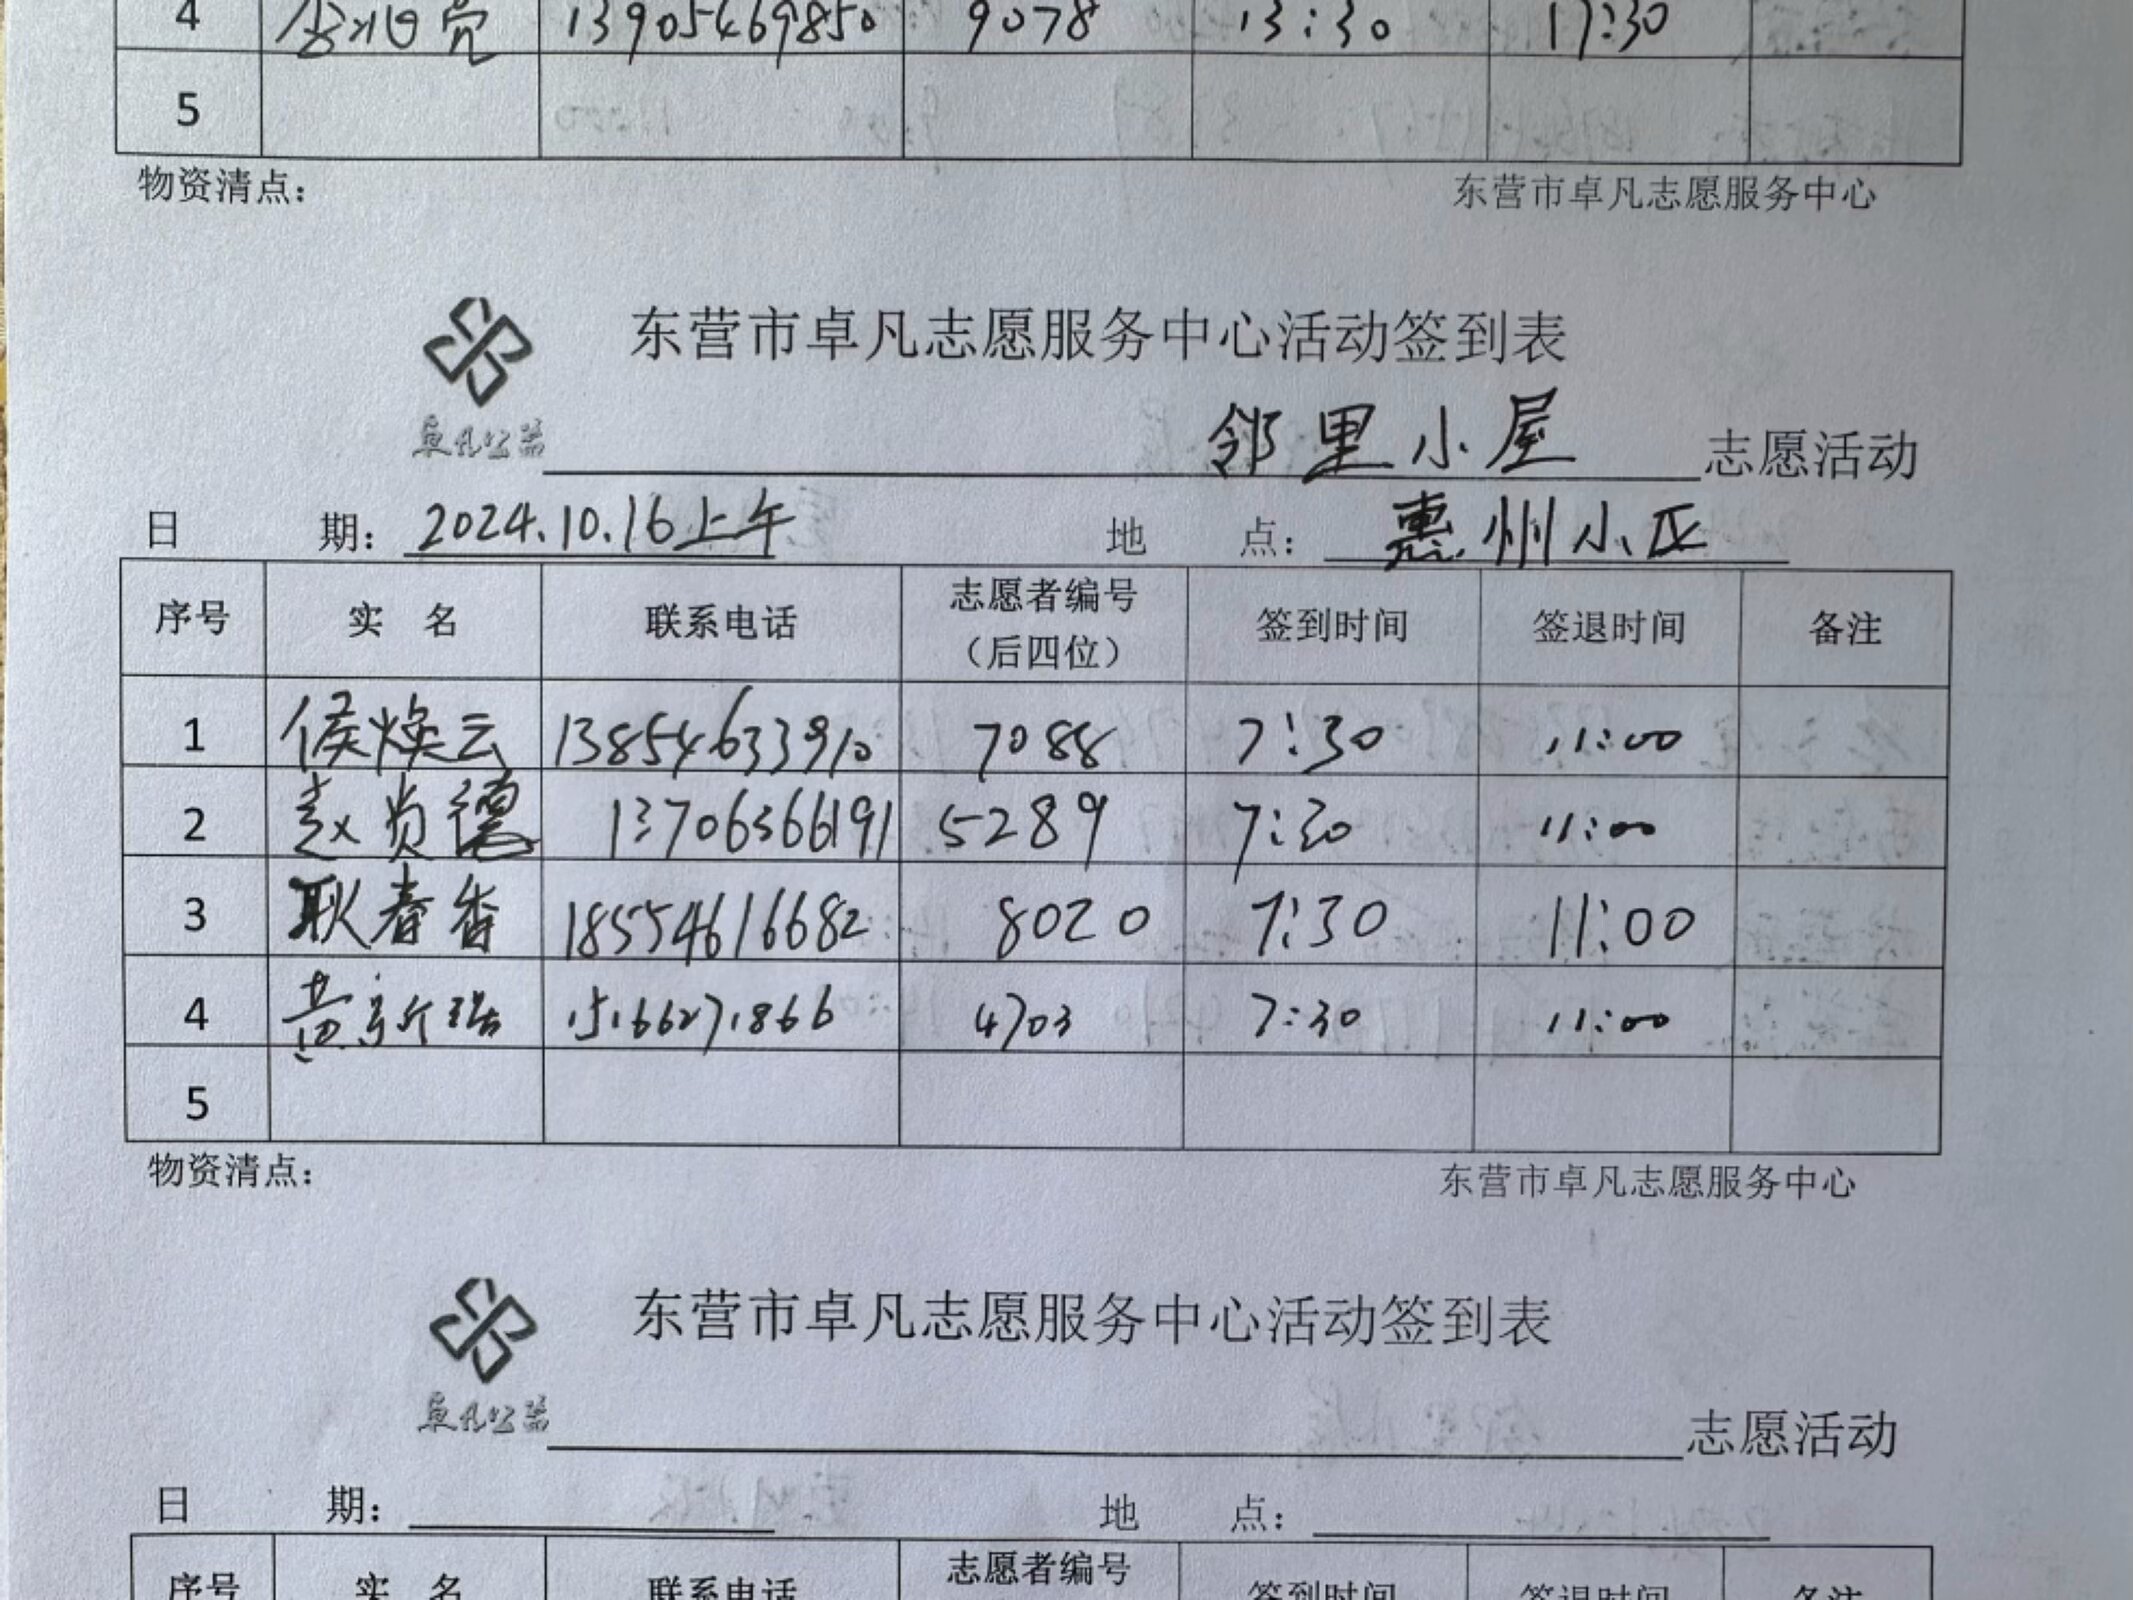 4 13905469850 9078 13:30 17:30
5
物资清点： 东营市卓凡志愿服务中心
东营市卓凡志愿服务中心活动签到表
卓凡公益 邻里小屋 志愿活动
日 期：2024.10.16上午 地 点：惠州小区
序号 实 名 联系电话 志愿者编号（后四位） 签到时间 签退时间 备注
1 侯焕云 13854633910 7088 7:30 11:00
2 赵贵德 13706366191 5289 7:30 11:00
3 耿春香 18554616682 8020 7:30 11:00
4 黄新瑞 15166271866 4703 7:30 11:00
5
物资清点： 东营市卓凡志愿服务中心
东营市卓凡志愿服务中心活动签到表
卓凡公益 志愿活动
日 期： 地 点：
序号 实 名 联系电话 志愿者编号 签到时间 签退时间 备注